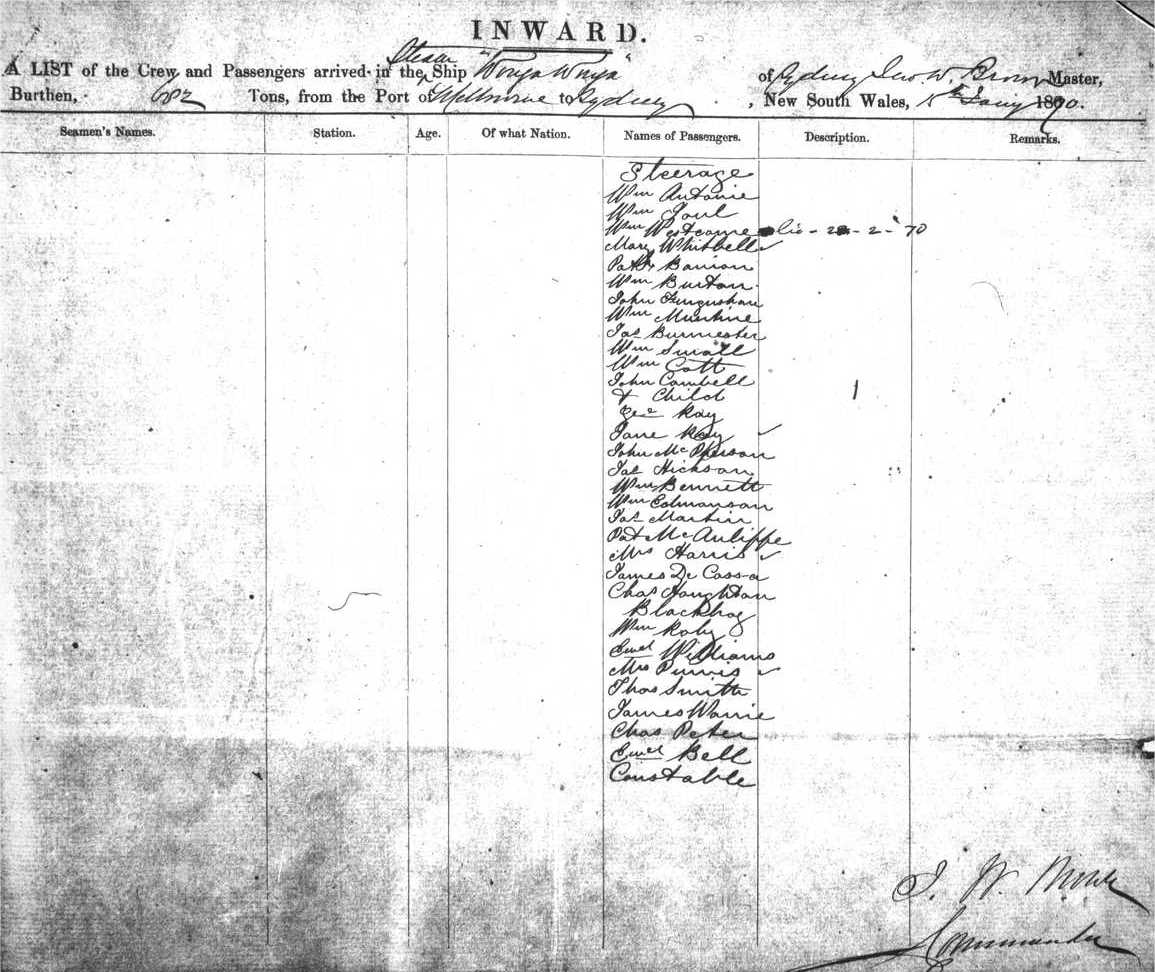 INWARD.
A LIST of the Crew and Passengers arrived in the Steam Ship "Wonga Wonga" of Sydney Jno. W. Brown Master,
Burthen, 682 Tons, from the Port of Melbourne to Sydney, New South Wales, 1870.
Seamen's Names. Station. Age. Of what Nation. Names of Passengers. Description. Remarks.
Steerage
Wm Antonie
Wm
Wm 2-70
Mary Whitbell
Banion
Wm Burton
John
Wm
Jas Burmester
Wm Small
Wm Cott
John Cambell
& Child
Geo Kay
Jane Kay
John McPherson
Jas Hickson
Wm Bennett
Wm Edmanson
Jas Martin
Pat McAuliffe
Mrs Harris
James De Cassa
Chas Houghton
Blackhog
Wm Roby
Edwd Williams
Mrs Purvis
Thos Smith
James Warrie
Chas Peter
Edwd Bell
Constable
J. W. Brown
Commander